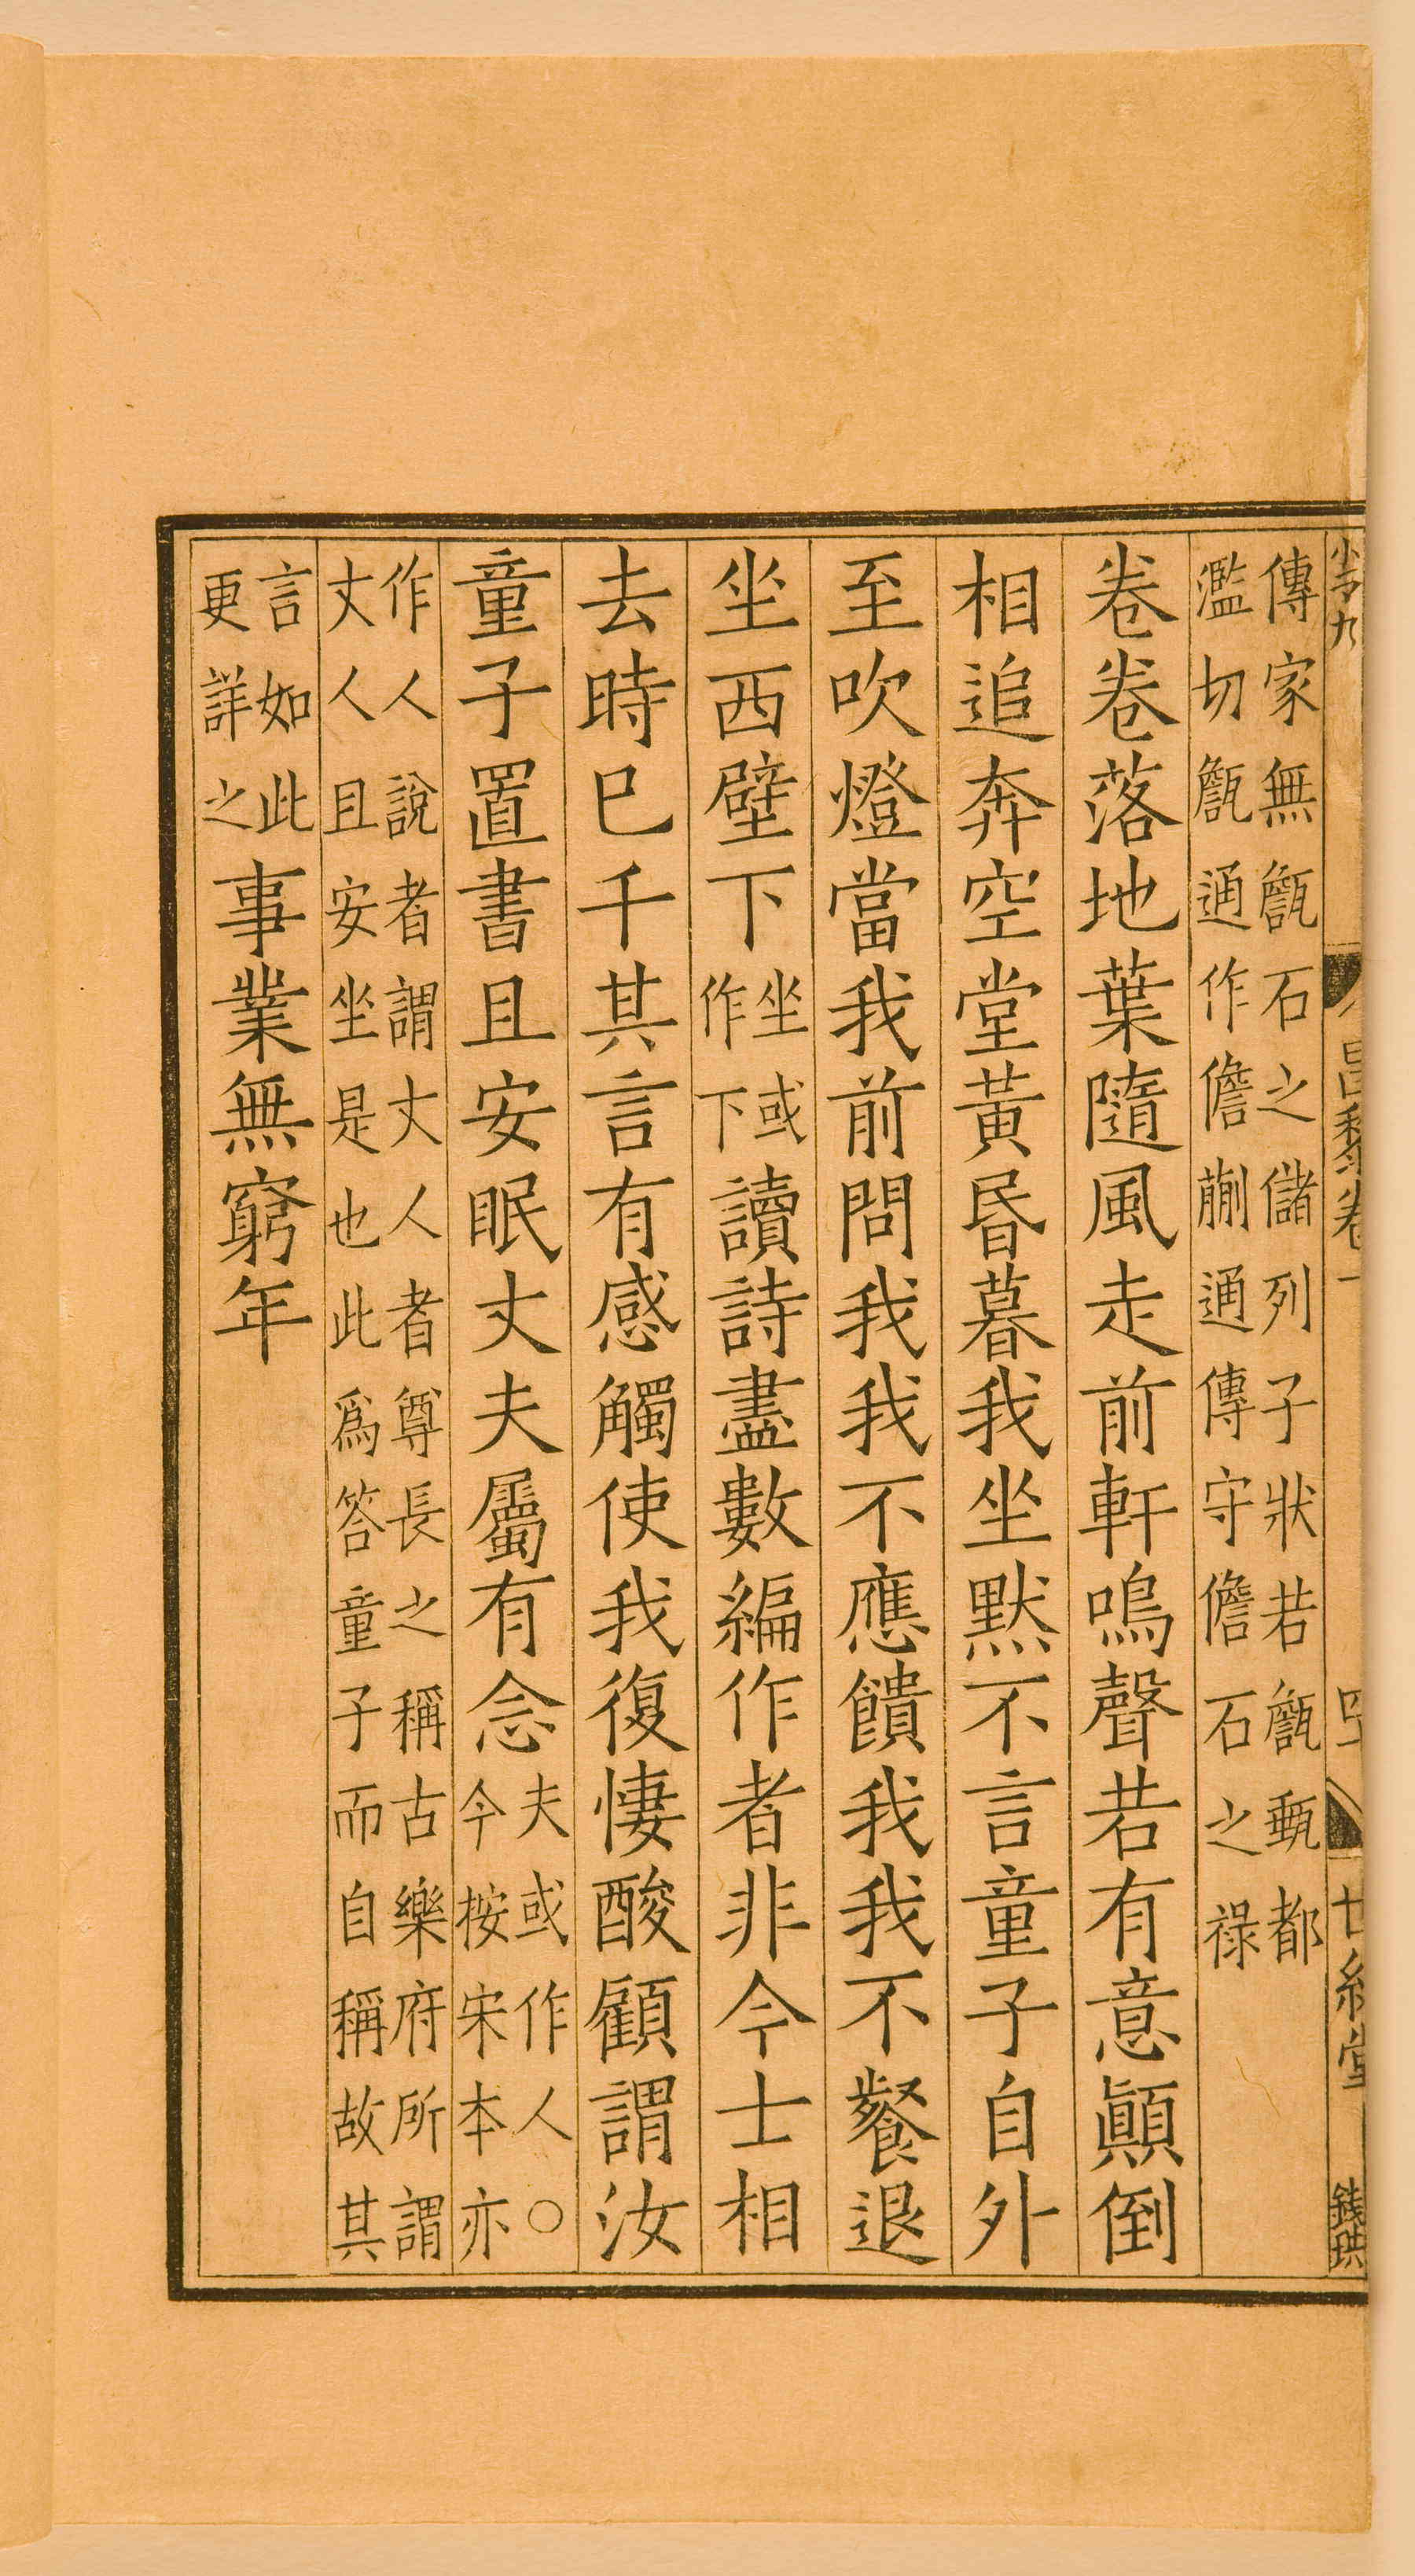 傳家無甔石之儲列子狀若甔甀都
濫切甔通作儋蒯通傳守儋石之祿
卷卷落地葉隨風走前軒鳴聲若有意顚倒
相追奔空堂黃昏暮我坐默不言童子自外
至吹燈當我前問我我不應饋我我不餐退
坐西壁下坐或作下讀詩盡數編作者非今士相
去時已千其言有感觸使我復悽酸顧謂汝
童子置書且安眠丈夫屬有念夫或作人〇今按宋本亦
作人說者謂丈人者尊長之稱古樂府所謂
丈人且安坐是也此爲答童子而自稱故其
言如此更詳之事業無窮年